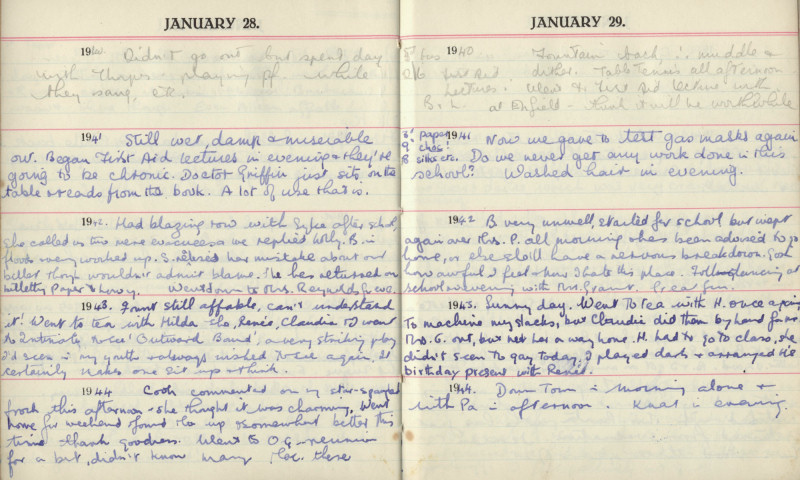 JANUARY 28.
1940. Didn't go out but spend day
with Thorpes playing pf. while
they sang, etc.
1941 Still wet, damp & miserable
out. Began First Aid lectures in evening & they're
going to be chronic. Doctor Griffin just sits on the
table & reads from the book. A lot of use that is.
1942. Had blazing row with after school,
She called us two mere evacuees & we replied B. in
floods very worked up. S. her mistake about our
billet though wouldn't admit blame. He has returned on
Paper & Went down to Mrs. Reynolds
1943. still affable, can't understand
it! Went to tea with Hilda Renée, Claudia & I went
to see 'Outward Bound', a very striking play
I'd seen in my youth & always wished to see again. It
certainly makes one sit up & think.
1944 Cook commented on my star-spangled
frock this afternoon - she thought it was charming. Went
home for weekend found up & somewhat better this
time thank goodness. Went to O.G. reunion
for a bit, didn't know many there
JANUARY 29.
1940 Fountain back in middle &
dither. Table Tennis all afternoon
lectures. Went to First Aid lecture with
B. at Enfield - think it will be worthwhile
1941 Now we have to test gas masks again
Do we never get any work done in this
school? Washed hair in evening.
1942 B. very unwell, started for school but wept
again over Mrs. P. all morning & has been advised to go
home, or else she'll have a nervous breakdown. Gosh
how awful I feel & how I hate this place. dancing at
school in evening with Mrs. Grant. Great fun.
1943. Sunny day. Went to tea with H. once again
to machine my slacks, but Claudie did them by hand for me.
Mrs. G. out, but met her on way home. H. had to go to class, she
didn't seem so gay today, I played darts & arranged H's
birthday present with Renée.
1944. Down Town in morning alone &
with Pa in afternoon. Knit in evening.